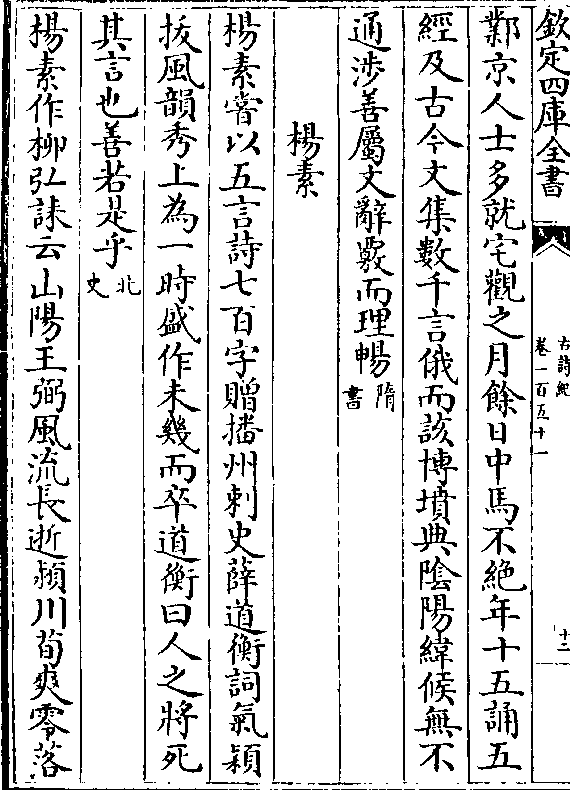 欽定四庫全書
古詩紀
卷一百五十一
十二
鄴京人士多就宅觀之月餘日中馬不絶年十五誦五
經及古今文集數千言俄而該博墳典陰陽緯候無不
通涉善屬文辭覈而理暢隋書
楊素
楊素嘗以五言詩七百字贈播州刺史薛道衡詞氣穎
拔風韻秀上為一時盛作未幾而卒道衡曰人之將死
其言也善若是乎北史
楊素作柳弘誄云山陽王弼風流長逝潁川荀爽零落